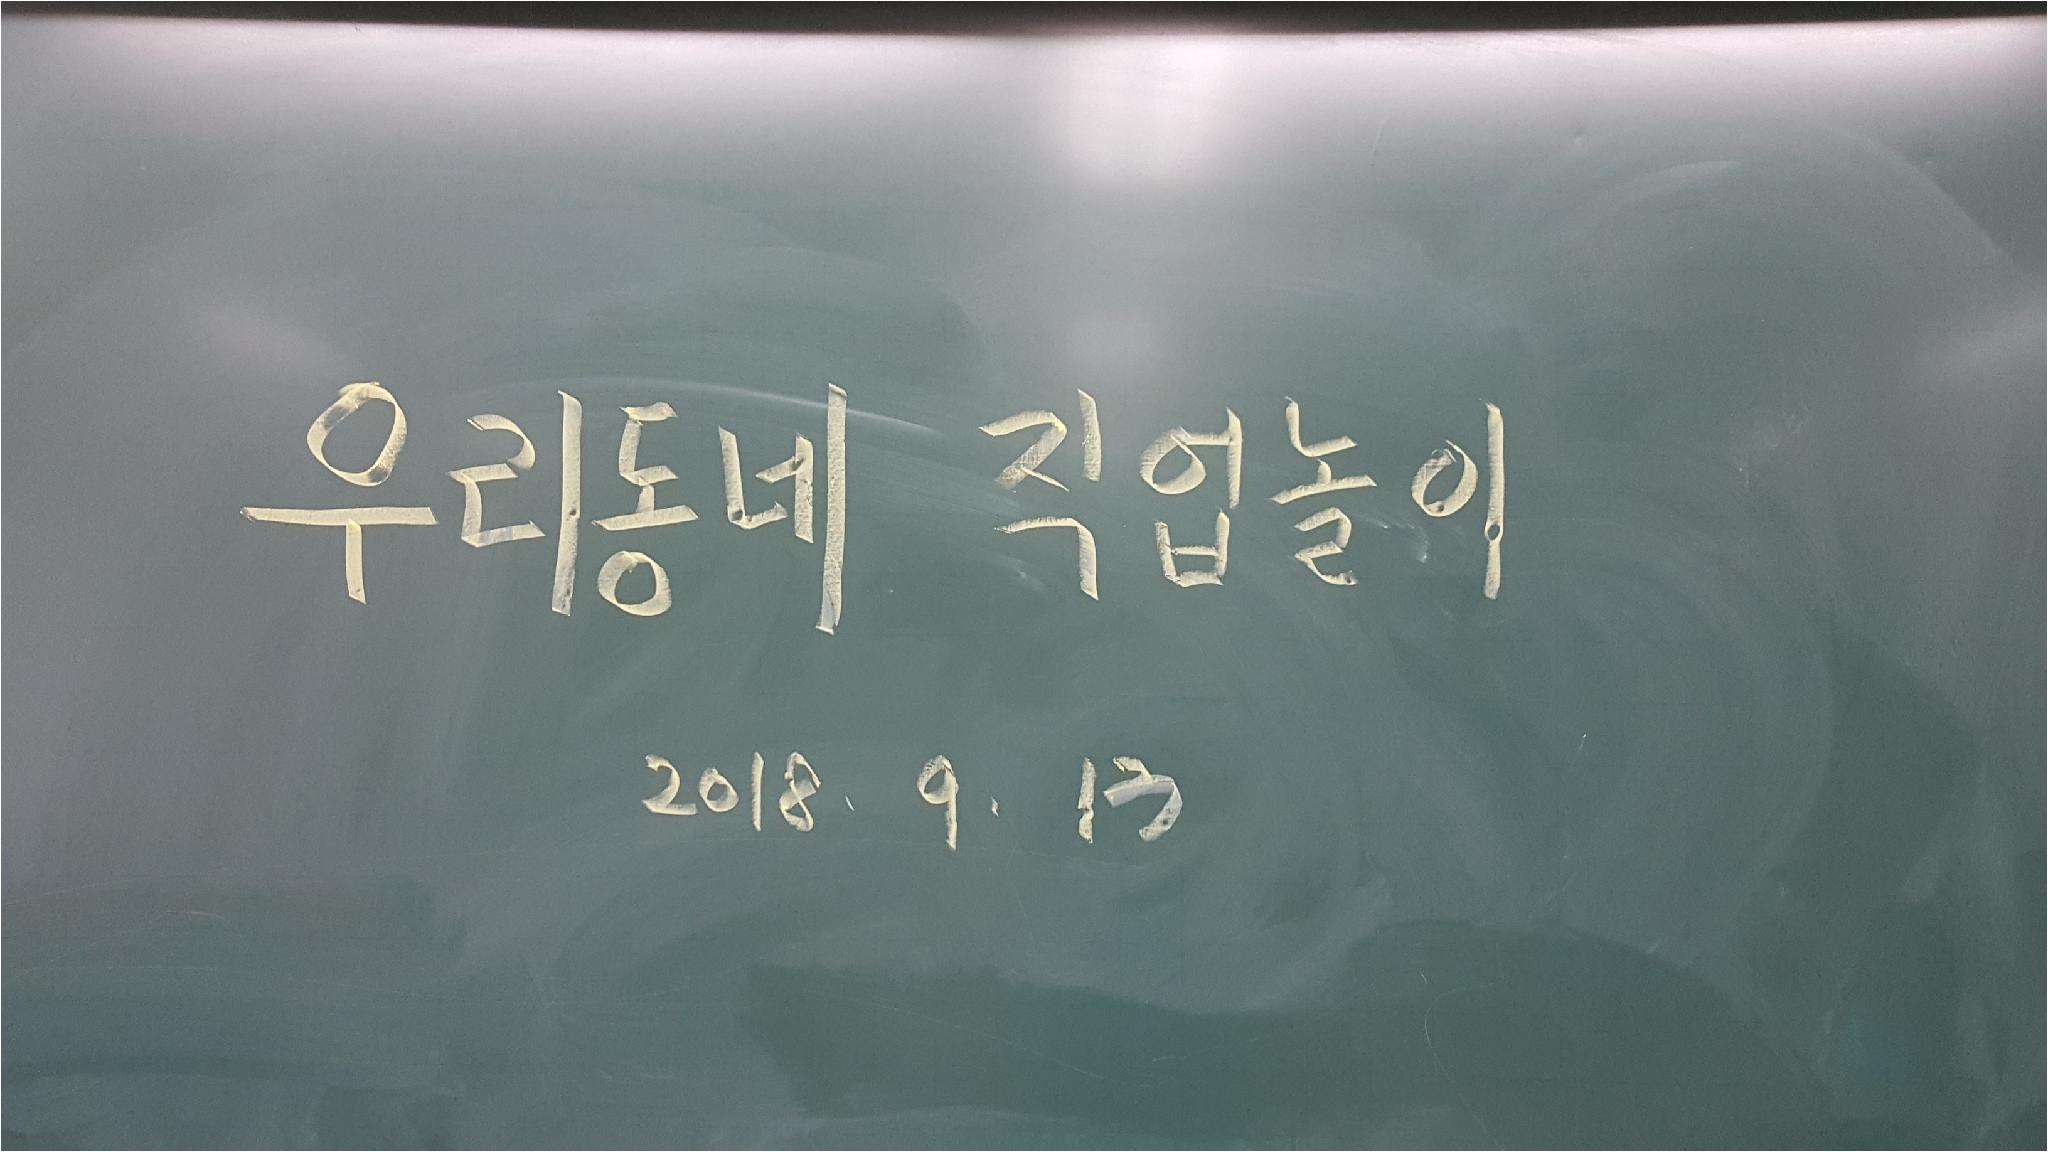 우리동네 직업놀이
2018. 9. 13